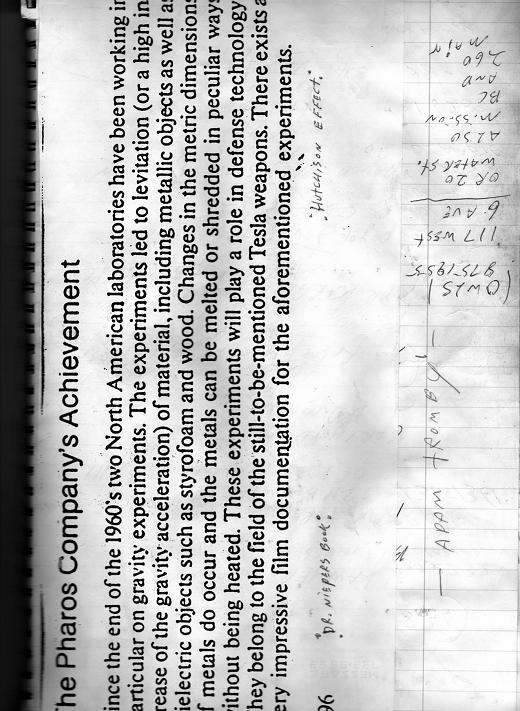 he Pharos Company's Achievement
ince the end of the 1960's two North American laboratories have been working in
articular on gravity experiments. The experiments led to levitation (or a high in
rease of the gravity acceleration) of material, including metallic objects as well as
ielectric objects such as styrofoam and wood. Changes in the metric dimensions
f metals do occur and the metals can be melted or shredded in peculiar ways
ithout being heated. These experiments will play a role in defense technology
hey belong to the field of the still-to-be-mentioned Tesla weapons. There exists a
ery impressive film documentation for the aforementioned experiments.
"HUTCHISON EFFECT."
"DR. NIEPERS BOOK".
96
— ADAM TROMBY —
(OWLS)
975-1955
1117 WEST
6 AVE
OR 20
WATER ST.
ALSO
MISSION
BC
AND
260
MAIN